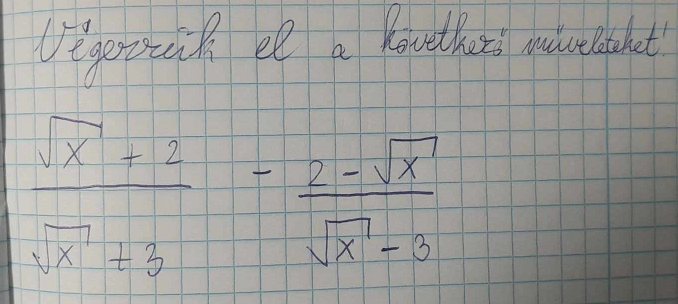 Végezzük el a következő műveleteket!
√x + 2 - 2 - √x
√x + 3 √x - 3